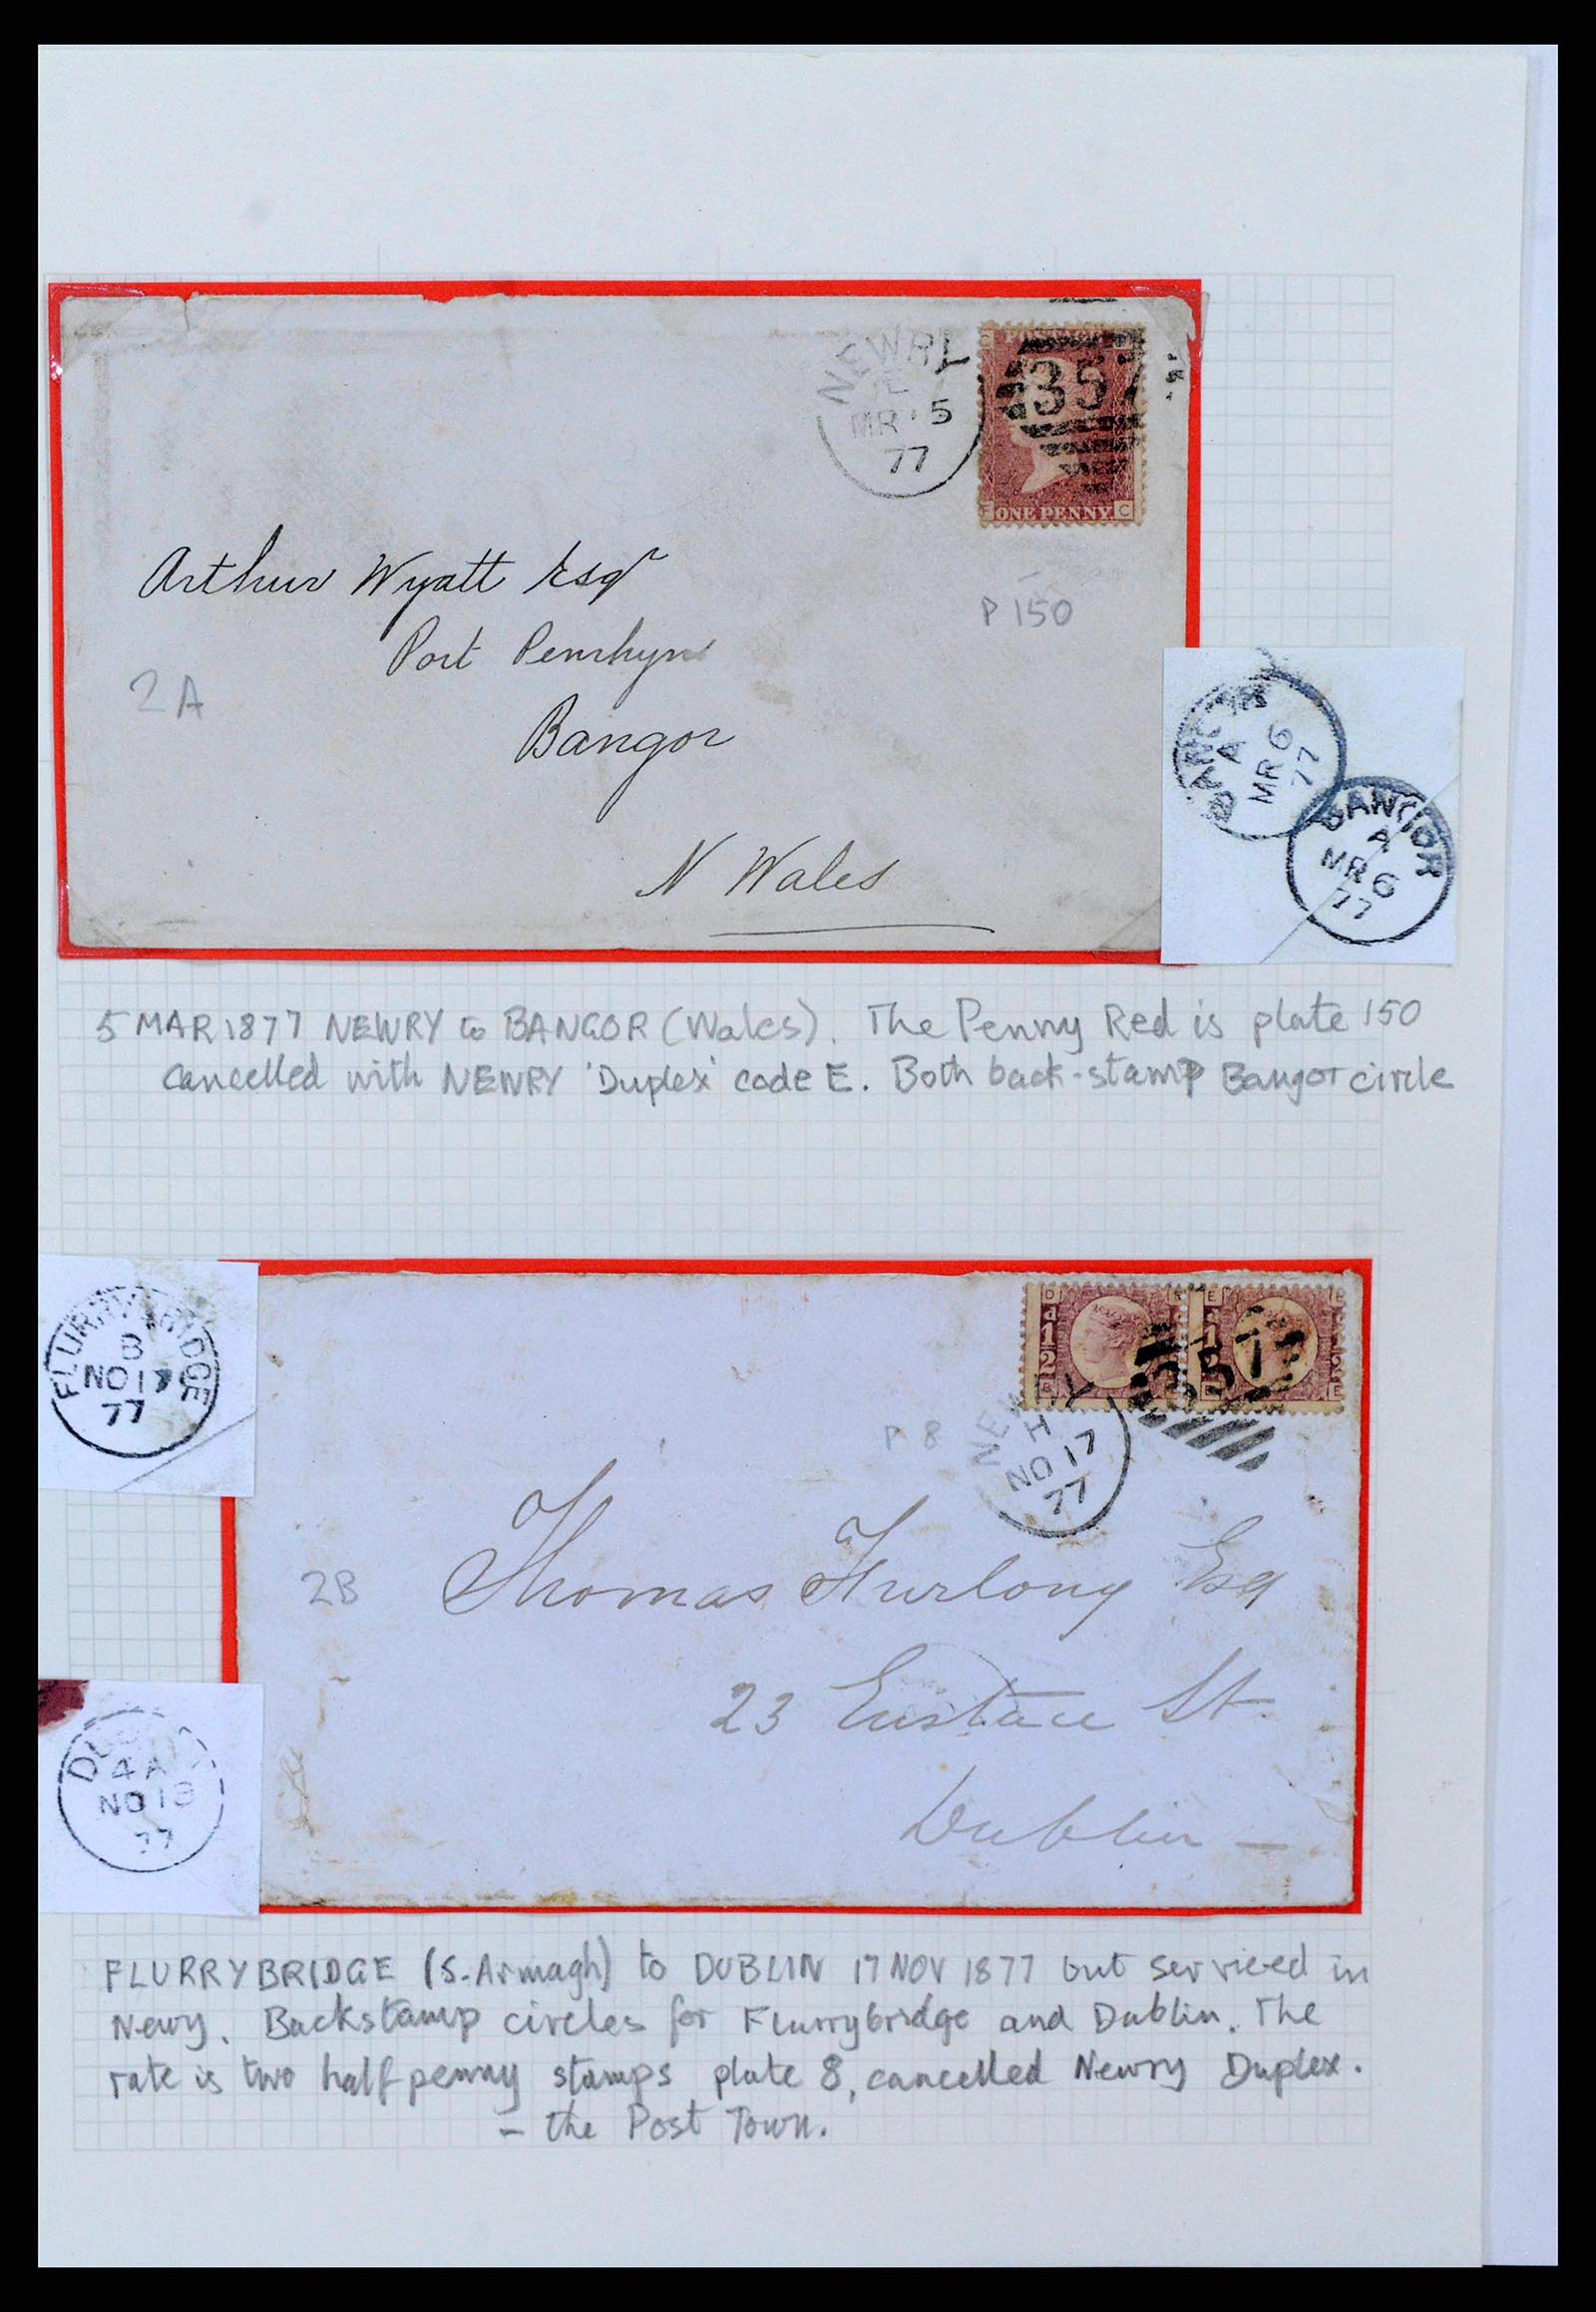 NEWRY
E
MR 5
77
POSTAGE
357
ONE PENNY
C
Arthur Wyatt Esqr
Port Penrhyn
Bangor
N Wales
P 150
2A
BANGOR
A
MR 6
77
BANGOR
A
MR 6
77
5 MAR 1877 NEWRY to BANGOR (Wales). The Penny Red is plate 150
cancelled with NEWRY 'Duplex' code E. Both back-stamp Bangor circle
FLURRYBRIDGE
B
NO 17
77
357
NEWRY
H
NO 17
77
P 8
Thomas Furlong Esq
23 Eustace St.
Dublin —
2B
DUBLIN
4 A
NO 18
77
FLURRYBRIDGE (S. Armagh) to DUBLIN 17 NOV 1877 but serviced in
Newry. Backstamp circles for Flurrybridge and Dublin. The
rate is two halfpenny stamps plate 8, cancelled Newry Duplex.
– the Post Town.